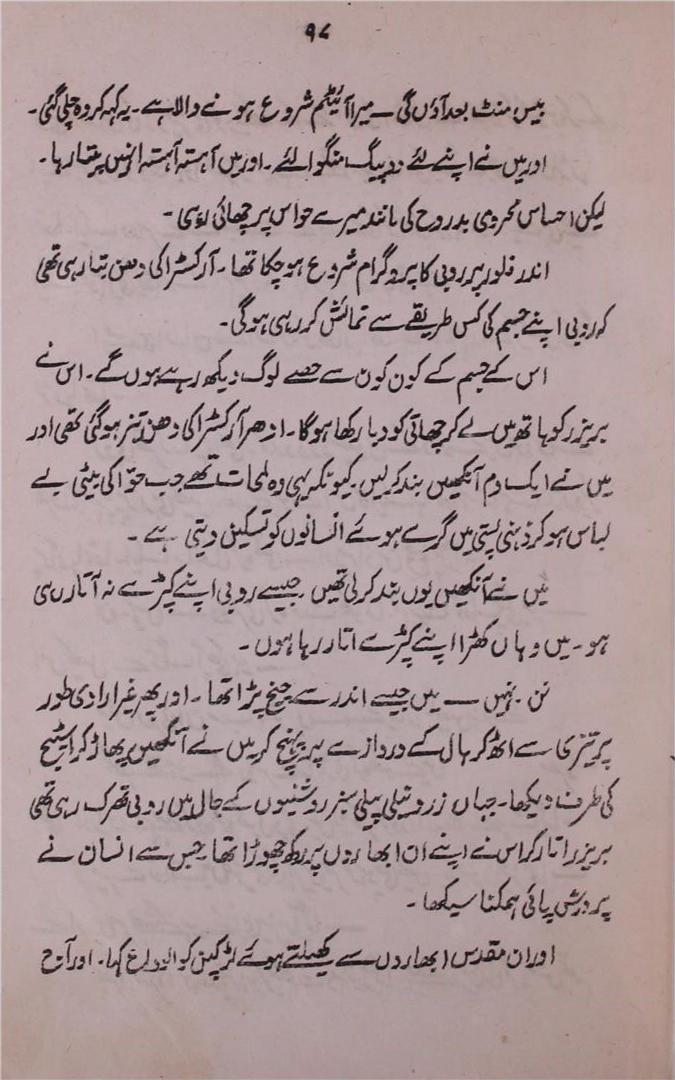 ۹۸
بیس منٹ بعد آؤں گی — میرا آئیٹم شروع ہونے والا ہے۔ یہ کہہ کر وہ چلی گئی۔
اور میں نے اپنے لئے دو پیگ منگوا لئے۔ اور میں آہستہ آہستہ انہیں پیتا رہا۔
لیکن احساس محرومی بدروح کی مانند میرے حواس پر چھائی رہی۔
اندر فلور پر روبی کا پروگرام شروع ہو چکا تھا۔ آرکسٹرا کی دھن بتا رہی تھی
کہ روبی اپنے جسم کی کس طریقے سے نمائش کر رہی ہو گی۔
اس کے جسم کے کون کون سے حصے لوگ دیکھ رہے ہوں گے۔ اس نے
بریزر کو ہاتھ میں لے کر چھاتی کو دبا رکھا ہوگا۔ ادھر آرکسٹرا کی دھن تیز ہو گئی تھی اور
میں نے ایک دم آنکھیں بند کر لیں۔ کیونکہ یہی وہ لمحات تھے جب حوّا کی بیٹی بے
لباس ہو کر ذہنی پستی میں گرے ہوئے انسانوں کو تسکین دیتی ہے۔
میں نے آنکھیں یوں بند کر لی تھیں جیسے روبی اپنے کپڑے نہ اتار رہی
ہو۔ میں وہاں کھڑا اپنے کپڑے اتار رہا ہوں۔
نن۔ نہیں — میں جیسے اندر سے چیخ پڑا تھا۔ اور پھر غیر ارادی طور
پر تیزی سے اٹھ کر ہال کے دروازے پر پہنچ کر میں نے آنکھیں پھاڑ کر اسٹیج
کی طرف دیکھا۔ جہاں زرد نیلی پیلی سبز روشنیوں کے جال میں روبی تھرک رہی تھی
بریزر اتار کر اس نے اپنے ان ابھاروں پر رکھ چھوڑا تھا جس سے انسان نے
پرورش پائی ہمکنا سیکھا۔
اور ان مقدس ابھاروں سے کھیلتے ہوئے لڑکپن کو الوداع کہا۔ اور آج